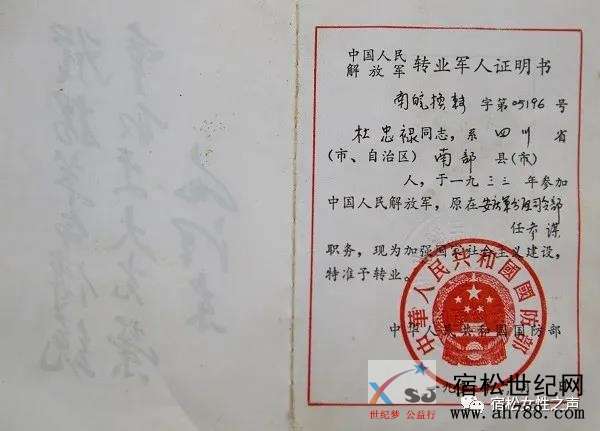 中国人民
解放军 转业军人证明书
南皖换转 字第05196号
杜忠禄同志，系四川省
（市、自治区）南部县（市）
人，于一九三三年参加
中国人民解放军，原在安庆军分区司令部
任参谋
职务，现为加强国家社会主义建设，
特准予转业。
中华人民共和国国防部
中華人民共和國國防部
XSJ
世纪梦 公益行
宿松世纪网
www.ah788.com
宿松女性之声